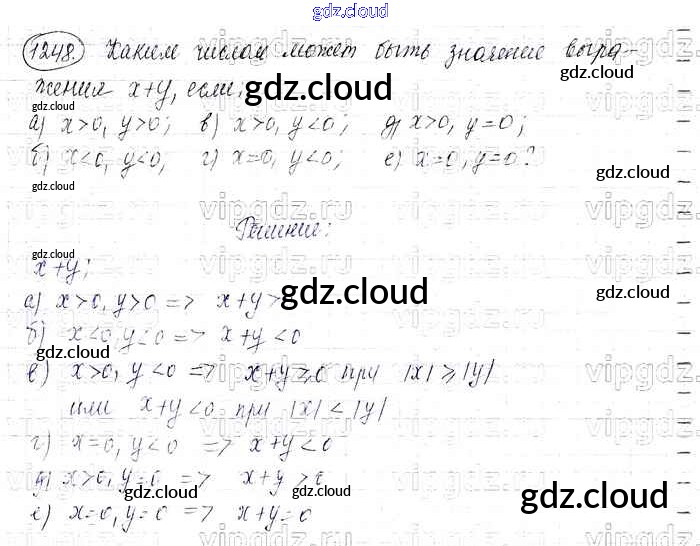 gdz.cloud
gdz.cloud
1248. Каким числом может быть значение выра-
жения x+y, если:
а) x>0, y>0; в) x>0, y<0; д) x>0, y=0;
б) x<0, y<0; г) x=0, y<0; е) x=0, y=0?
Решение:
x+y;
а) x>0, y>0 => x+y>
б) x<0, y<0 => x+y<0
в) x>0, y<0 => x+y⩾0 при |x|⩾|y|
или x+y<0 при |x|<|y|
г) x=0, y<0 => x+y<0
д) x>0, y=0 => x+y>0
е) x=0, y=0 => x+y=0
gdz.cloud
gdz.cloud
gdz.cloud
gdz.cloud
gdz.cloud
gdz.cloud
gdz.cloud
gdz.cloud
gdz.cloud
gdz.cloud
gdz.cloud
vipgdz.ru
vipgdz.ru
vipgdz.ru